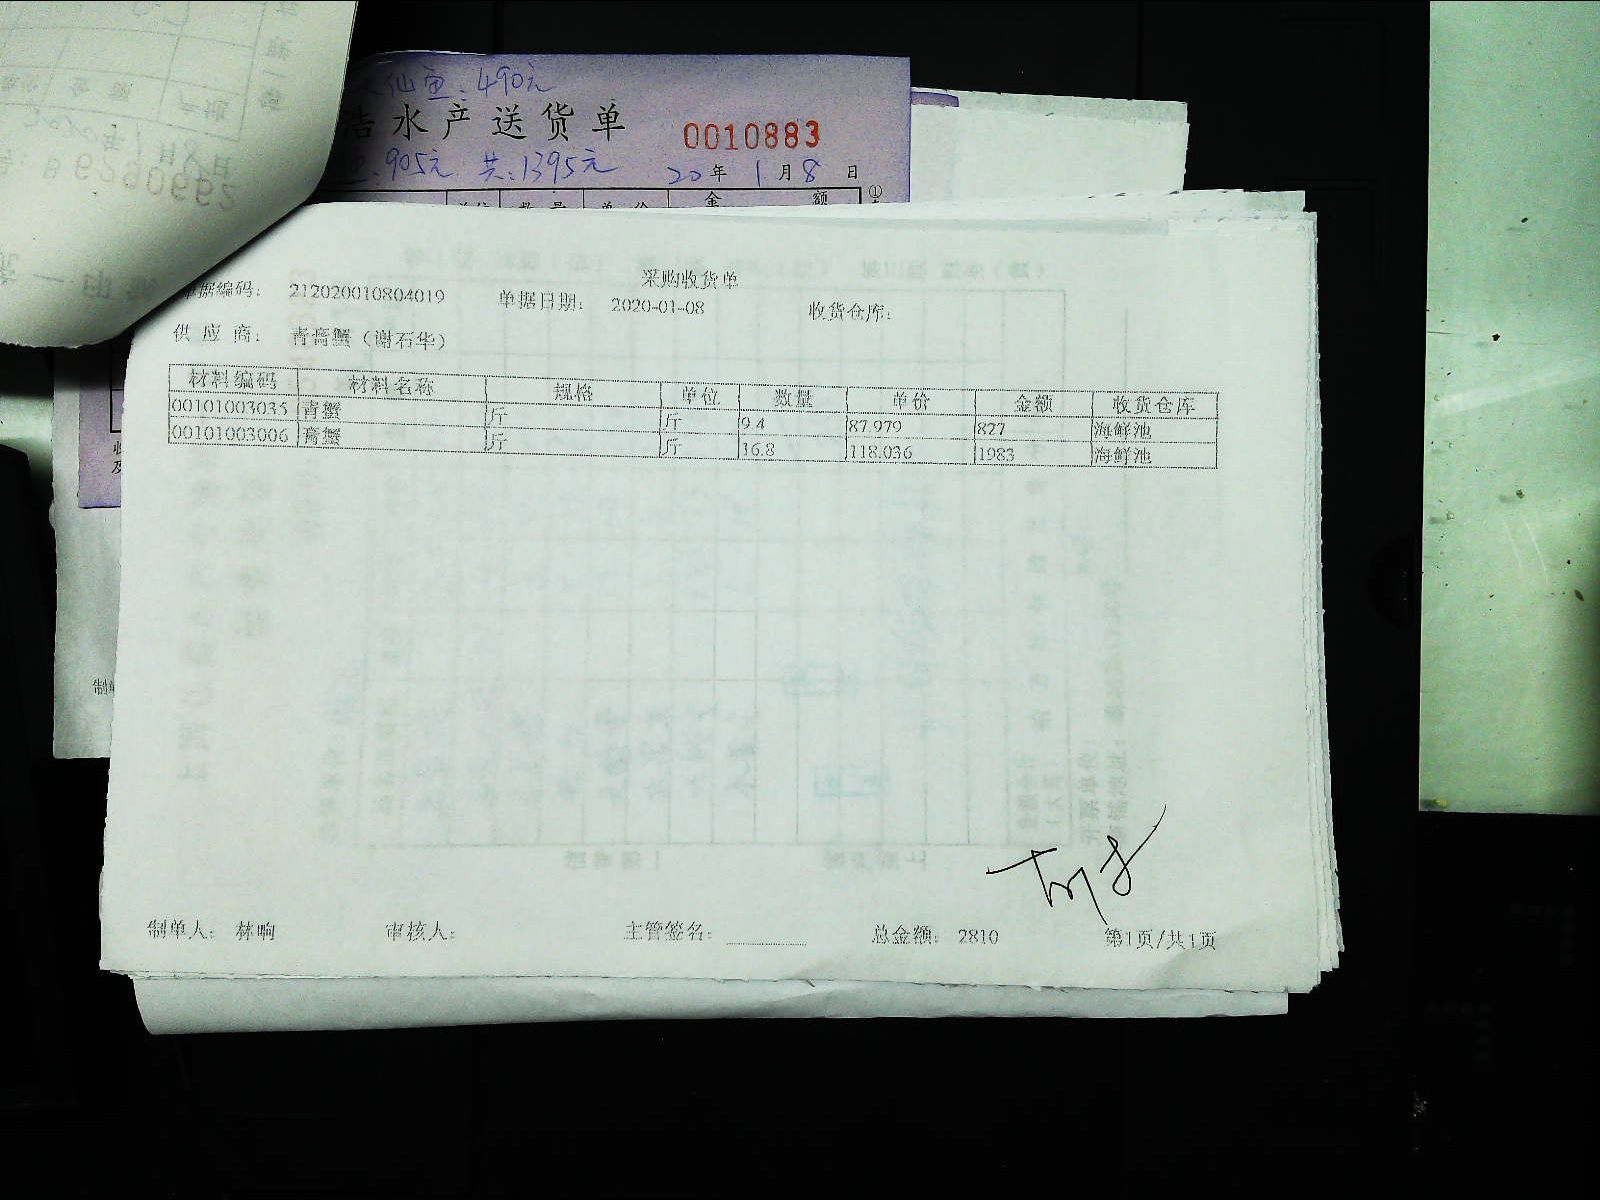 仙鱼:490元
浩水产送货单 0010883
905元 共:1395元 20年1月8日
金 额
采购收货单
单据编码: 212020010804019 单据日期: 2020-01-08 收货仓库:
供 应 商: 青膏蟹(谢石华)
材料编码 材料名称 规格 单位 数量 单价 金额 收货仓库
00101003035 青蟹 斤 斤 9.4 87.979 827 海鲜池
00101003006 膏蟹 斤 斤 16.8 118.036 1983 海鲜池
制单人: 林晌 审核人: 主管签名: 总金额: 2810 第1页/共1页